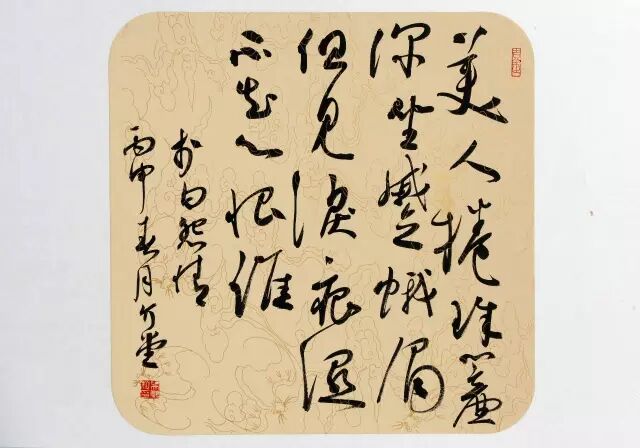 美人捲珠簾
深坐蹙蛾眉
但見淚痕濕
不知心恨誰
李白怨情
丙申春月